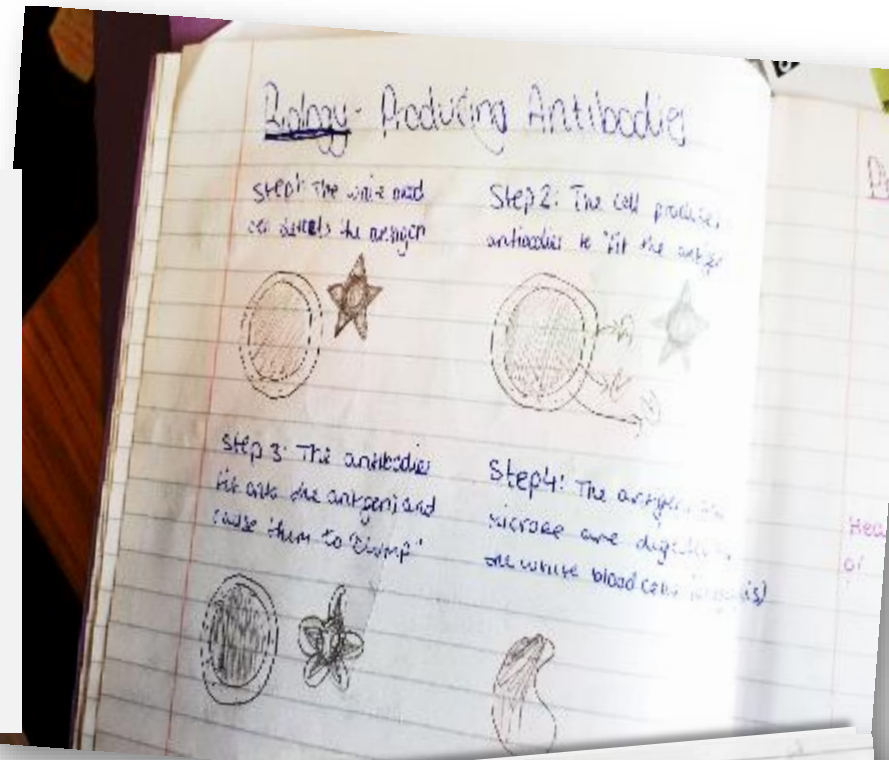 Biology - Producing Antibodies
Step 1: The white blood
cell detects the antigen
Step 2: The cell produces
antibodies to "fit the antigen
Step 3: The antibodies
fit onto the antigens and
cause them to "clump"
Step 4: The antigen
microbe are
the white blood cells
Hea
of